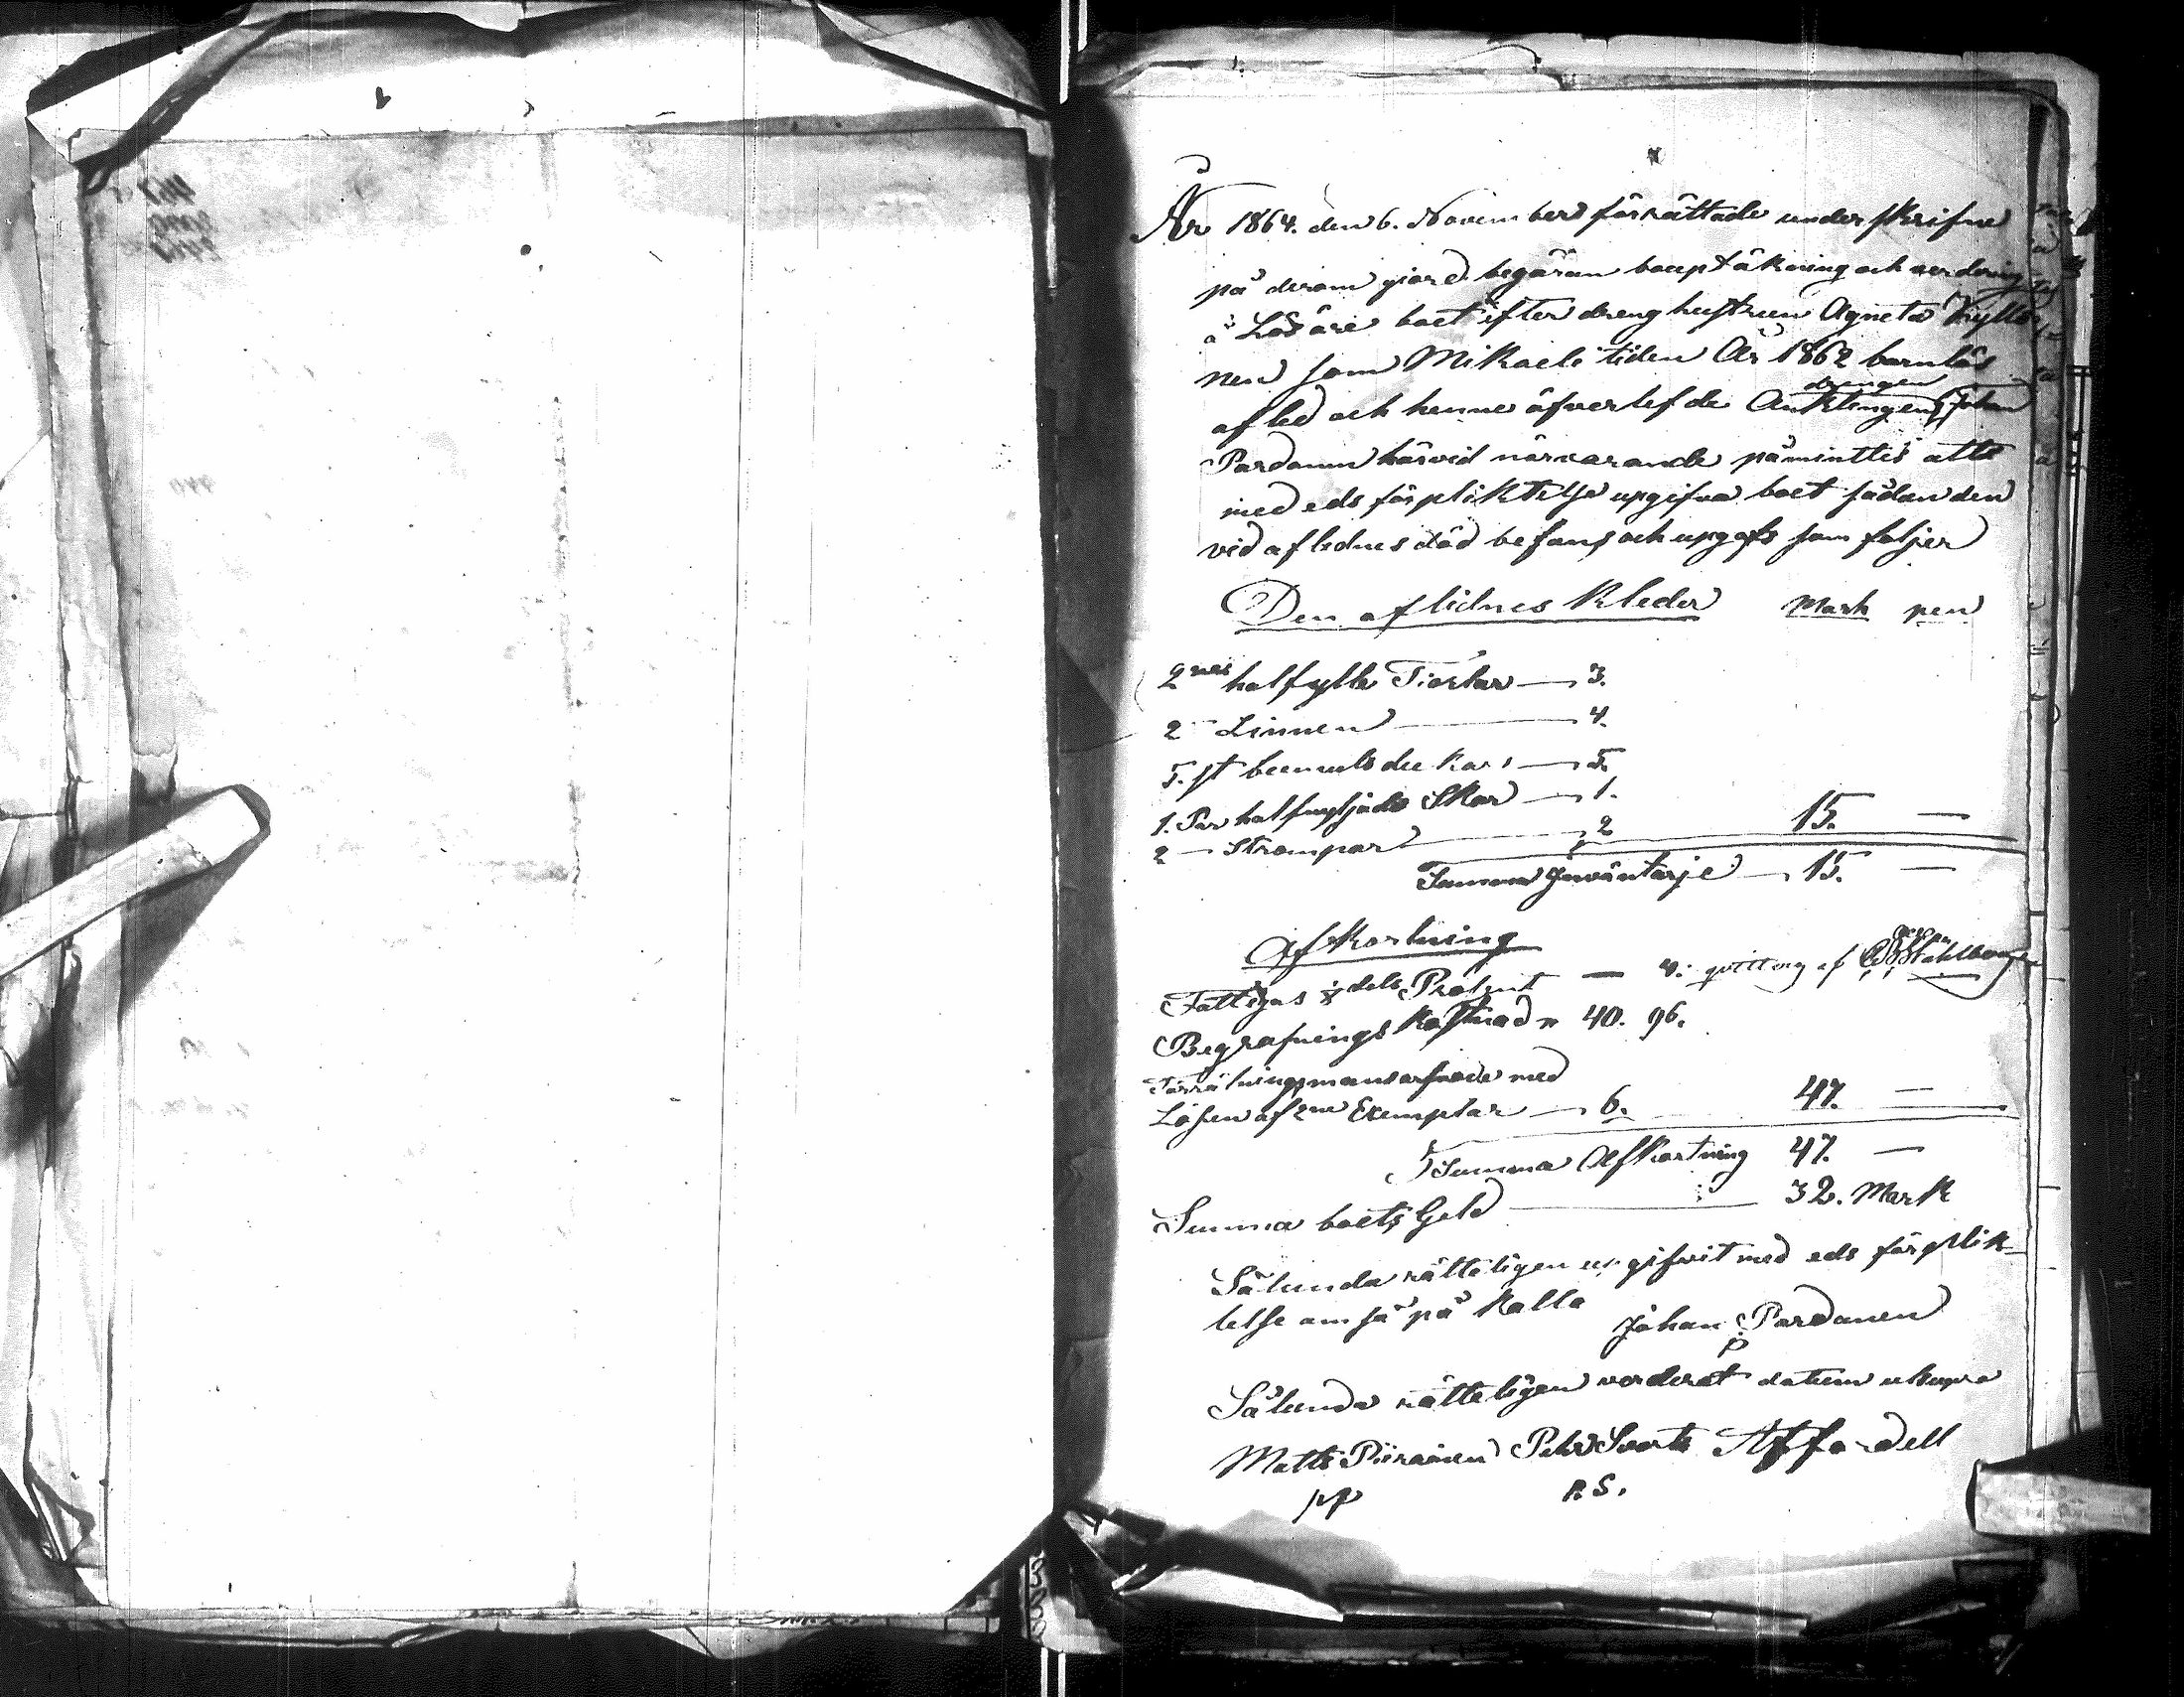 År 1864. den 6. November förrättade underskrifne
på derom giord begäran bouptäkning och verdering
å Lösöre boet efter dreng hustrun Agneta Kyllö
nen som Mikaeli tiden År 1862 barnlös
afled och henne äfverlefde Enklingen drengen Johan
Pardanen härvid närvarande påmintes att
med eds förpliktelse upgifva boet sådan den
vid aflednes död befans och upgafs som foljer
Den aflidnes Kleder Mark pen
2 halfylle Tiortar — 3.
2 Linnen — 4.
5. st bomuls dukar — 5.
1. Par halfnyljade Skor — 1.
2 — Strompar — 2 15. —
Summa Inväntarje — 15. —
Afkortning
Fattigas 1/8 dels Prosent — qvitteras af Stahlberg
Begrafnings kostnad 40. 96.
Förrätningsmans arfvode med
Lösen af 2ne Exemplar — 6. 47. —
Summa Afkortning 47. —
Summa boets Geld — 32. Mark
Sålunda rätteligen upgifvit med eds förplik
telse om så på kalla Johan Pardanen
Sålunda rätteligen verderat datum utsupra
Matts Piirainen Pehr Svarts Affordell
P. S.